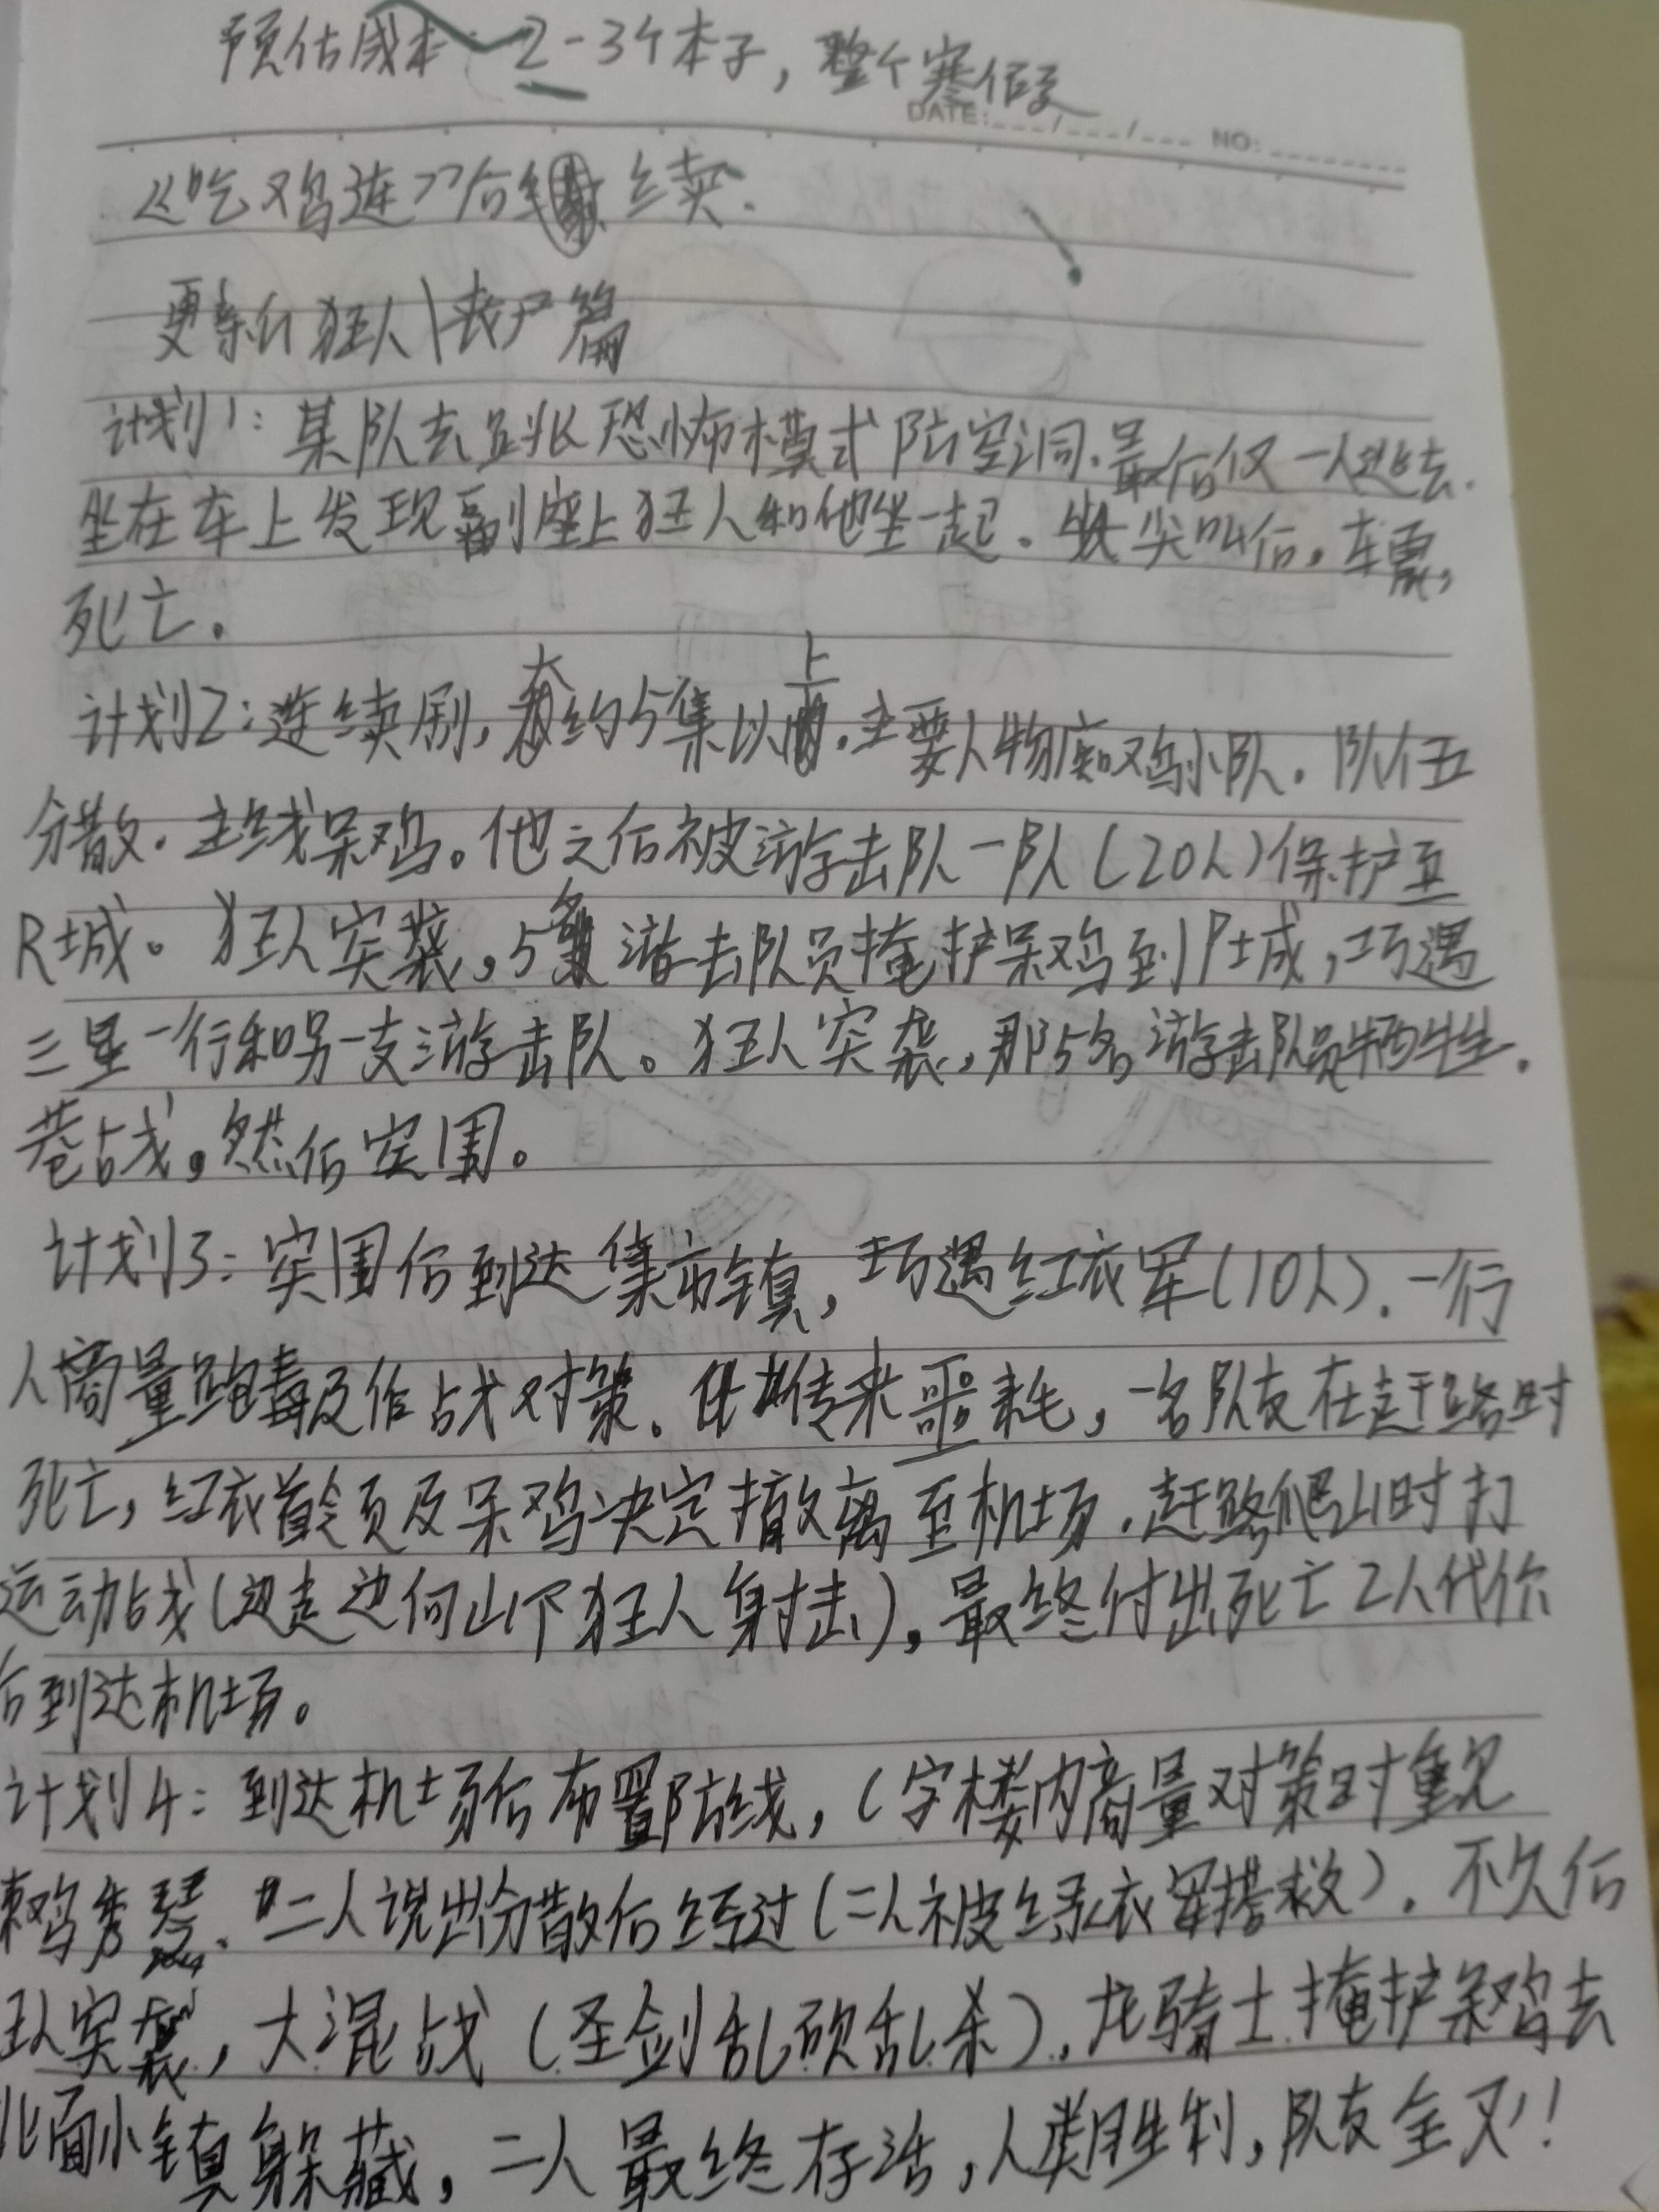 预估成本 2-3个本子，整个寒假
DATE: / / NO:
《吃鸡连》后续.
更新后狂人\丧尸篇
计划1：某队去挑恐怖模式防空洞.最后仅一人逃出.
坐在车上发现副座上狂人和他坐一起。尖叫后，车震，
死亡。
计划2：连续剧，大约5集以上.主要人物呆鸡小队。队伍
分散.主线呆鸡。他之后被游击队一队(20人)保护至
R城。狂人突袭，5名游击队员掩护呆鸡到P城，巧遇
三星一行和另一支游击队。狂人突袭，那5名游击队员牺牲.
巷战，然后突围。
计划3：突围后到达集市镇，巧遇红衣军(10人).一行
人商量跑毒及作战对策.传来噩耗，一名队友在赶路时
死亡，红衣首领及呆鸡决定撤离至机场.赶路爬山时打
运动战(边走边向山下狂人射击)，最终付出死亡2人代价
后到达机场。
计划4：到达机场后布置防线，C字楼内商量对策时重见
鸡秀琴.二人说出分散后经过(二人被绿衣军搭救).不久后
人突袭，大混战(圣剑乱砍乱杀).龙骑士掩护呆鸡去
北面小镇躲藏，二人最终存活，人类胜利，队友全灭!